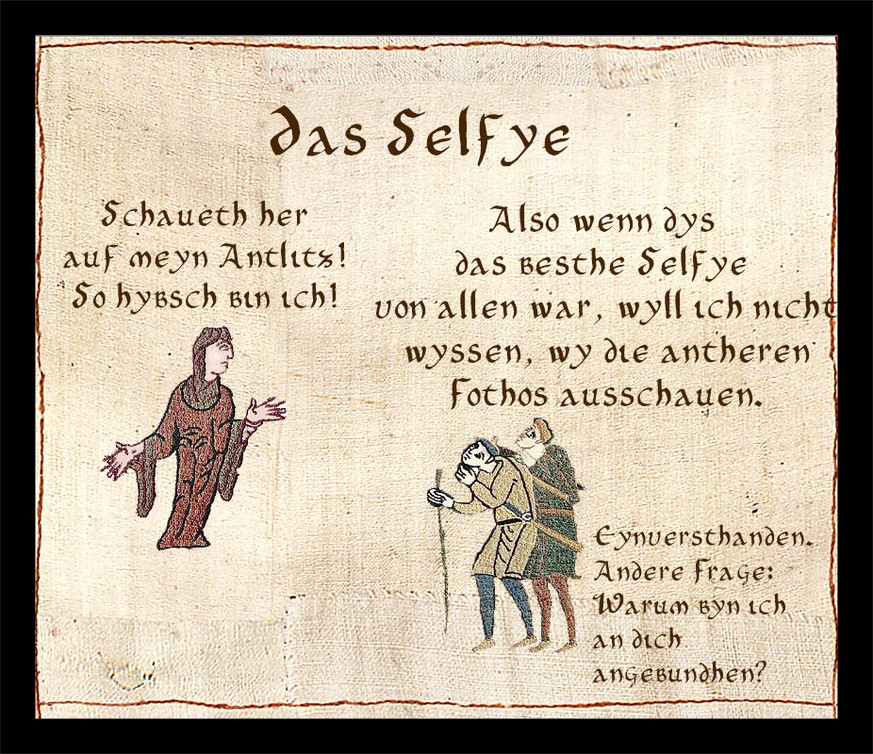 das Selfye
Schaueth her
auf meyn Antlitz!
So hybsch bin ich!
Also wenn dys
das besthe Selfye
von allen war, wyll ich nicht
wyssen, wy die antheren
Fothos ausschauen.
Eynversthanden.
Andere Frage:
Warum byn ich
an dich
angebundhen?